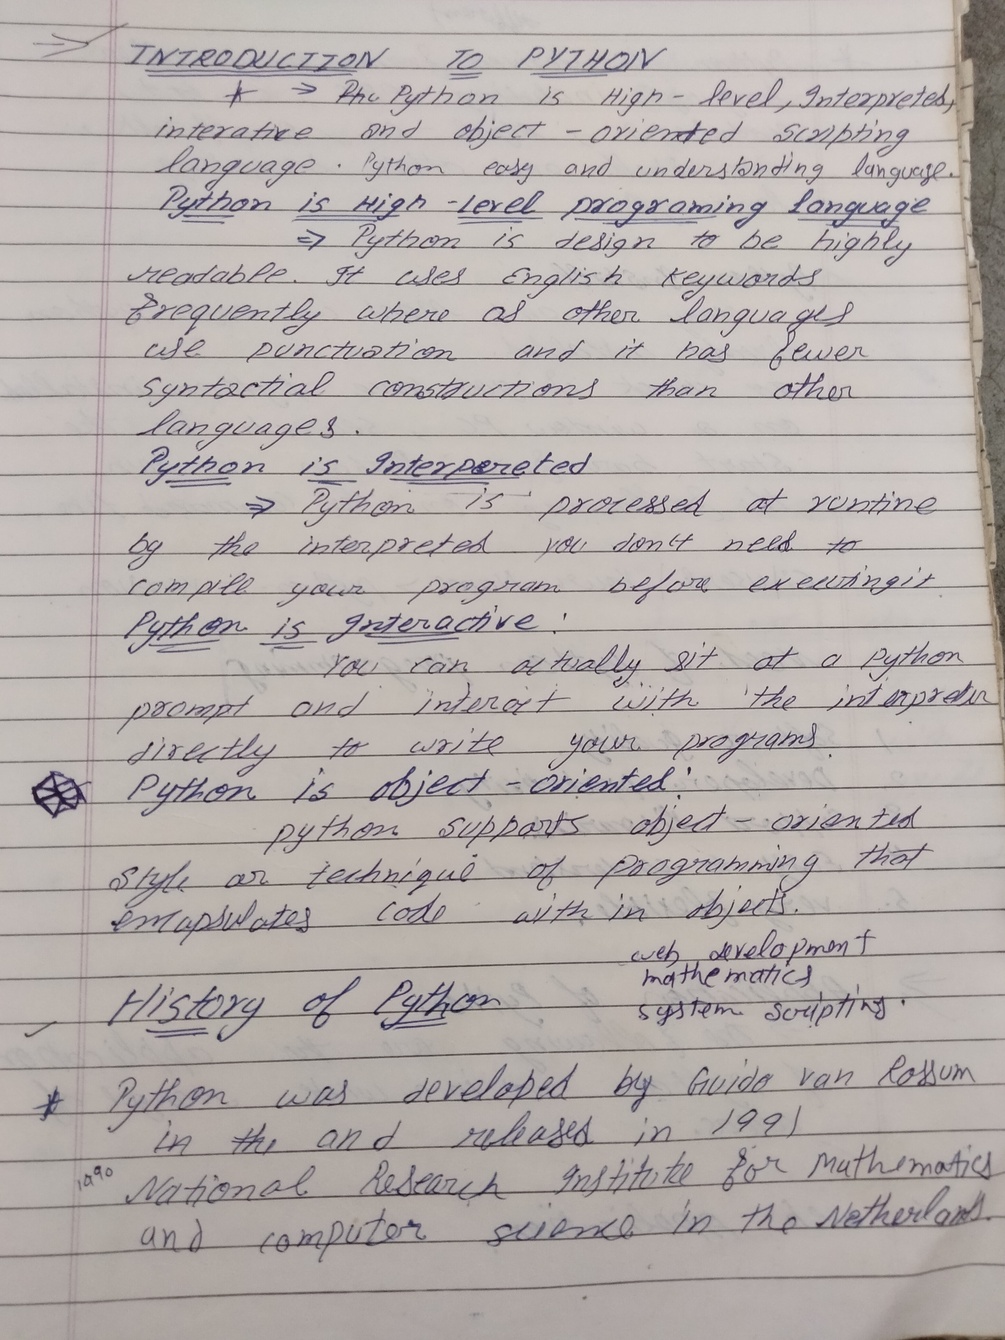 INTRODUCTION TO PYTHON
* ⇒ Python is High - level, Interpreted,
interative and object - oriented scripting
language. Python easy and understanding language.
Python is High - Level programing language
⇒ Python is design to be highly
readable. It uses English keywords
frequently where as other languages
use punctuation and it has fewer
syntactial constructions than other
languages.
Python is Interpereted
⇒ Python is processed at runtine
by the interpreted you don't need to
compile your program before executingit
Python is Interactive:
You can actually sit at a Python
prompt and interact with the interpreter
directly to write your programs.
Python is object - oriented:
python supports object - oriented
style or technique of programming that
emapsulates code with in objects.
web development
mathematics
system scripting.
History of Python
* Python was developed by Guido van Rossum
in the and released in 1991
1990
National Research Institute for Mathematics
and computer science in the Netherlands.